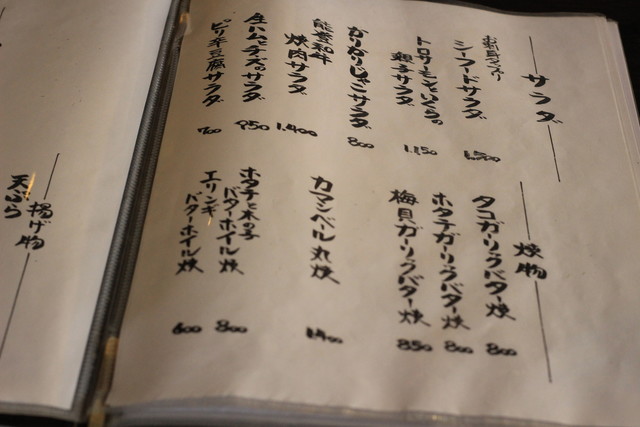 サラダ
お刺身たっぷり
シーフードサラダ
1,500
トロサーモンといくらの
親子サラダ
1,150
かりかりじゃこサラダ
800
能登和牛
焼肉サラダ
1,400
生ハムとチーズのサラダ
950
ピリ辛豆腐サラダ
700
焼物
タコガーリックバター焼
800
ホタテガーリックバター焼
800
梅貝ガーリックバター焼
850
カマンベール丸焼
1,400
ホタテと木の子
バターホイル焼
800
エリンギ
バターホイル焼
600
揚げ物
天ぷら